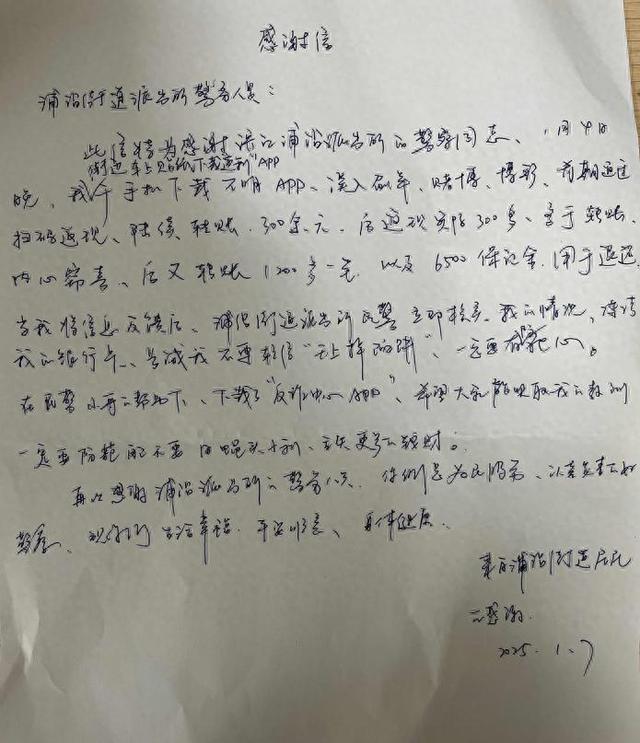 感谢信
浦沿街道派出所警务人员:
此信特为感谢滨江浦沿派出所的警察同志、1月4日
街边车上贴纸下载返利"APP
晚,我于手机下载不明APP、误入刷单、赌博、博彩、前期通过
扫码返现、陆续转账.300余元.后返现实際300多、
内心窃喜、后又转账1200多一笔 以及6500保证金.用于返还.
当我将信息反馈后、浦沿街道派出所民警立即核实我的情况,
我的银行卡、告诫我不要轻信"天上掉馅饼"、一定要有防范心。
在民警同志的帮助下、下载了"反诈中心APP"、希望大家能吸取我的教训
一定要防范 不要因蝇头小利、丢失更多的钱财。
再次感谢浦沿派出所的警务人员.你们是为民服务、认真负责的好
警察、祝你们生活幸福.平安顺意、身体健康.
来自浦沿街道居民
的感谢.
2025.1.7